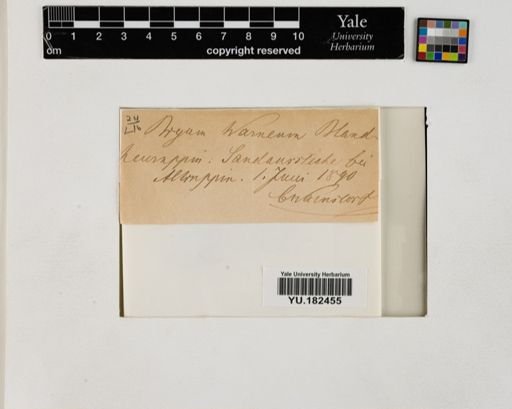 0 1 2 3 4 5 6 7 8 9 10
cm
copyright reserved
Yale
University
Herbarium
24
Bryum Warneum Bland.
Neuruppin: Sandausstiche bei
Altruppin. 1. Juni 1890
CWarnstorf
Yale University Herbarium
YU.182455